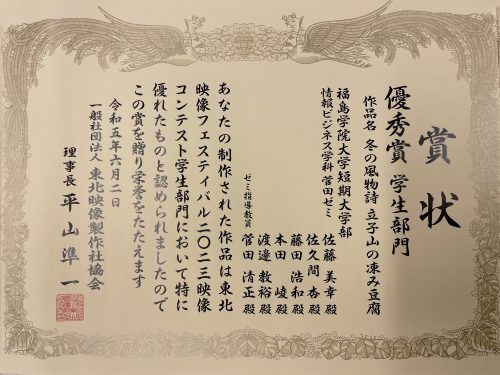 賞状
優秀賞 学生部門
作品名 冬の風物詩 立子山の凍み豆腐
福島学院大学短期大学部
情報ビジネス学科 菅田ゼミ
佐藤 美幸殿
佐久間 杏殿
藤田 浩和殿
本田 崚殿
渡邉 教裕殿
ゼミ指導教員
菅田 清正殿
あなたの制作された作品は東北
映像フェスティバル二〇二三映像
コンテスト学生部門において特に
優れたものと認められましたので
この賞を贈り栄誉をたたえます
令和五年六月二日
一般社団法人 東北映像製作社協会
理事長 平山準一